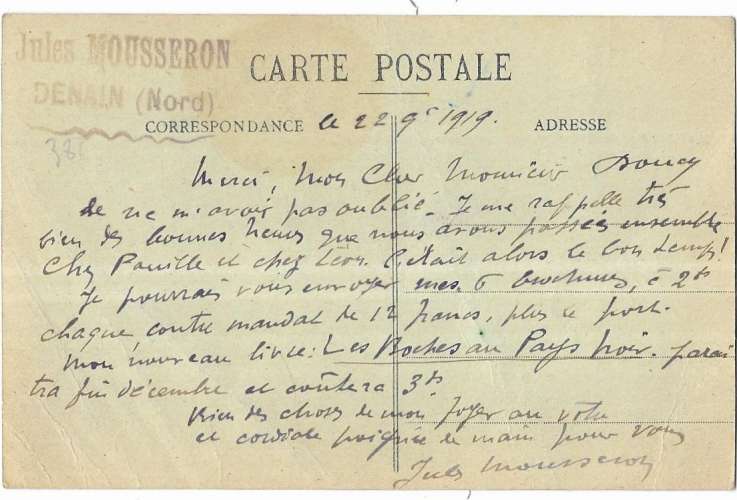 Jules MOUSSERON
DENAIN (Nord)
CARTE POSTALE
CORRESPONDANCE le 22 9e 1919. ADRESSE
38
Merci, Mon Cher Monsieur Doucy
de ne m'avoir pas oublié. Je me rappelle très
bien des bonnes heures que nous avons passées ensemble
chez Pouille et chez Léon. C'était alors le bon temps!
Je pourrais vous envoyer mes 6 brochures, à 2 frs
chaque contre mandat de 12 francs, plus le port.
Mon nouveau livre: Les Boches au Pays Noir. parai
tra fin décembre et coûtera 3 frs
Bien des choses de mon foyer au vôtre
et cordiale poignée de main pour vous
Jules Mousseron